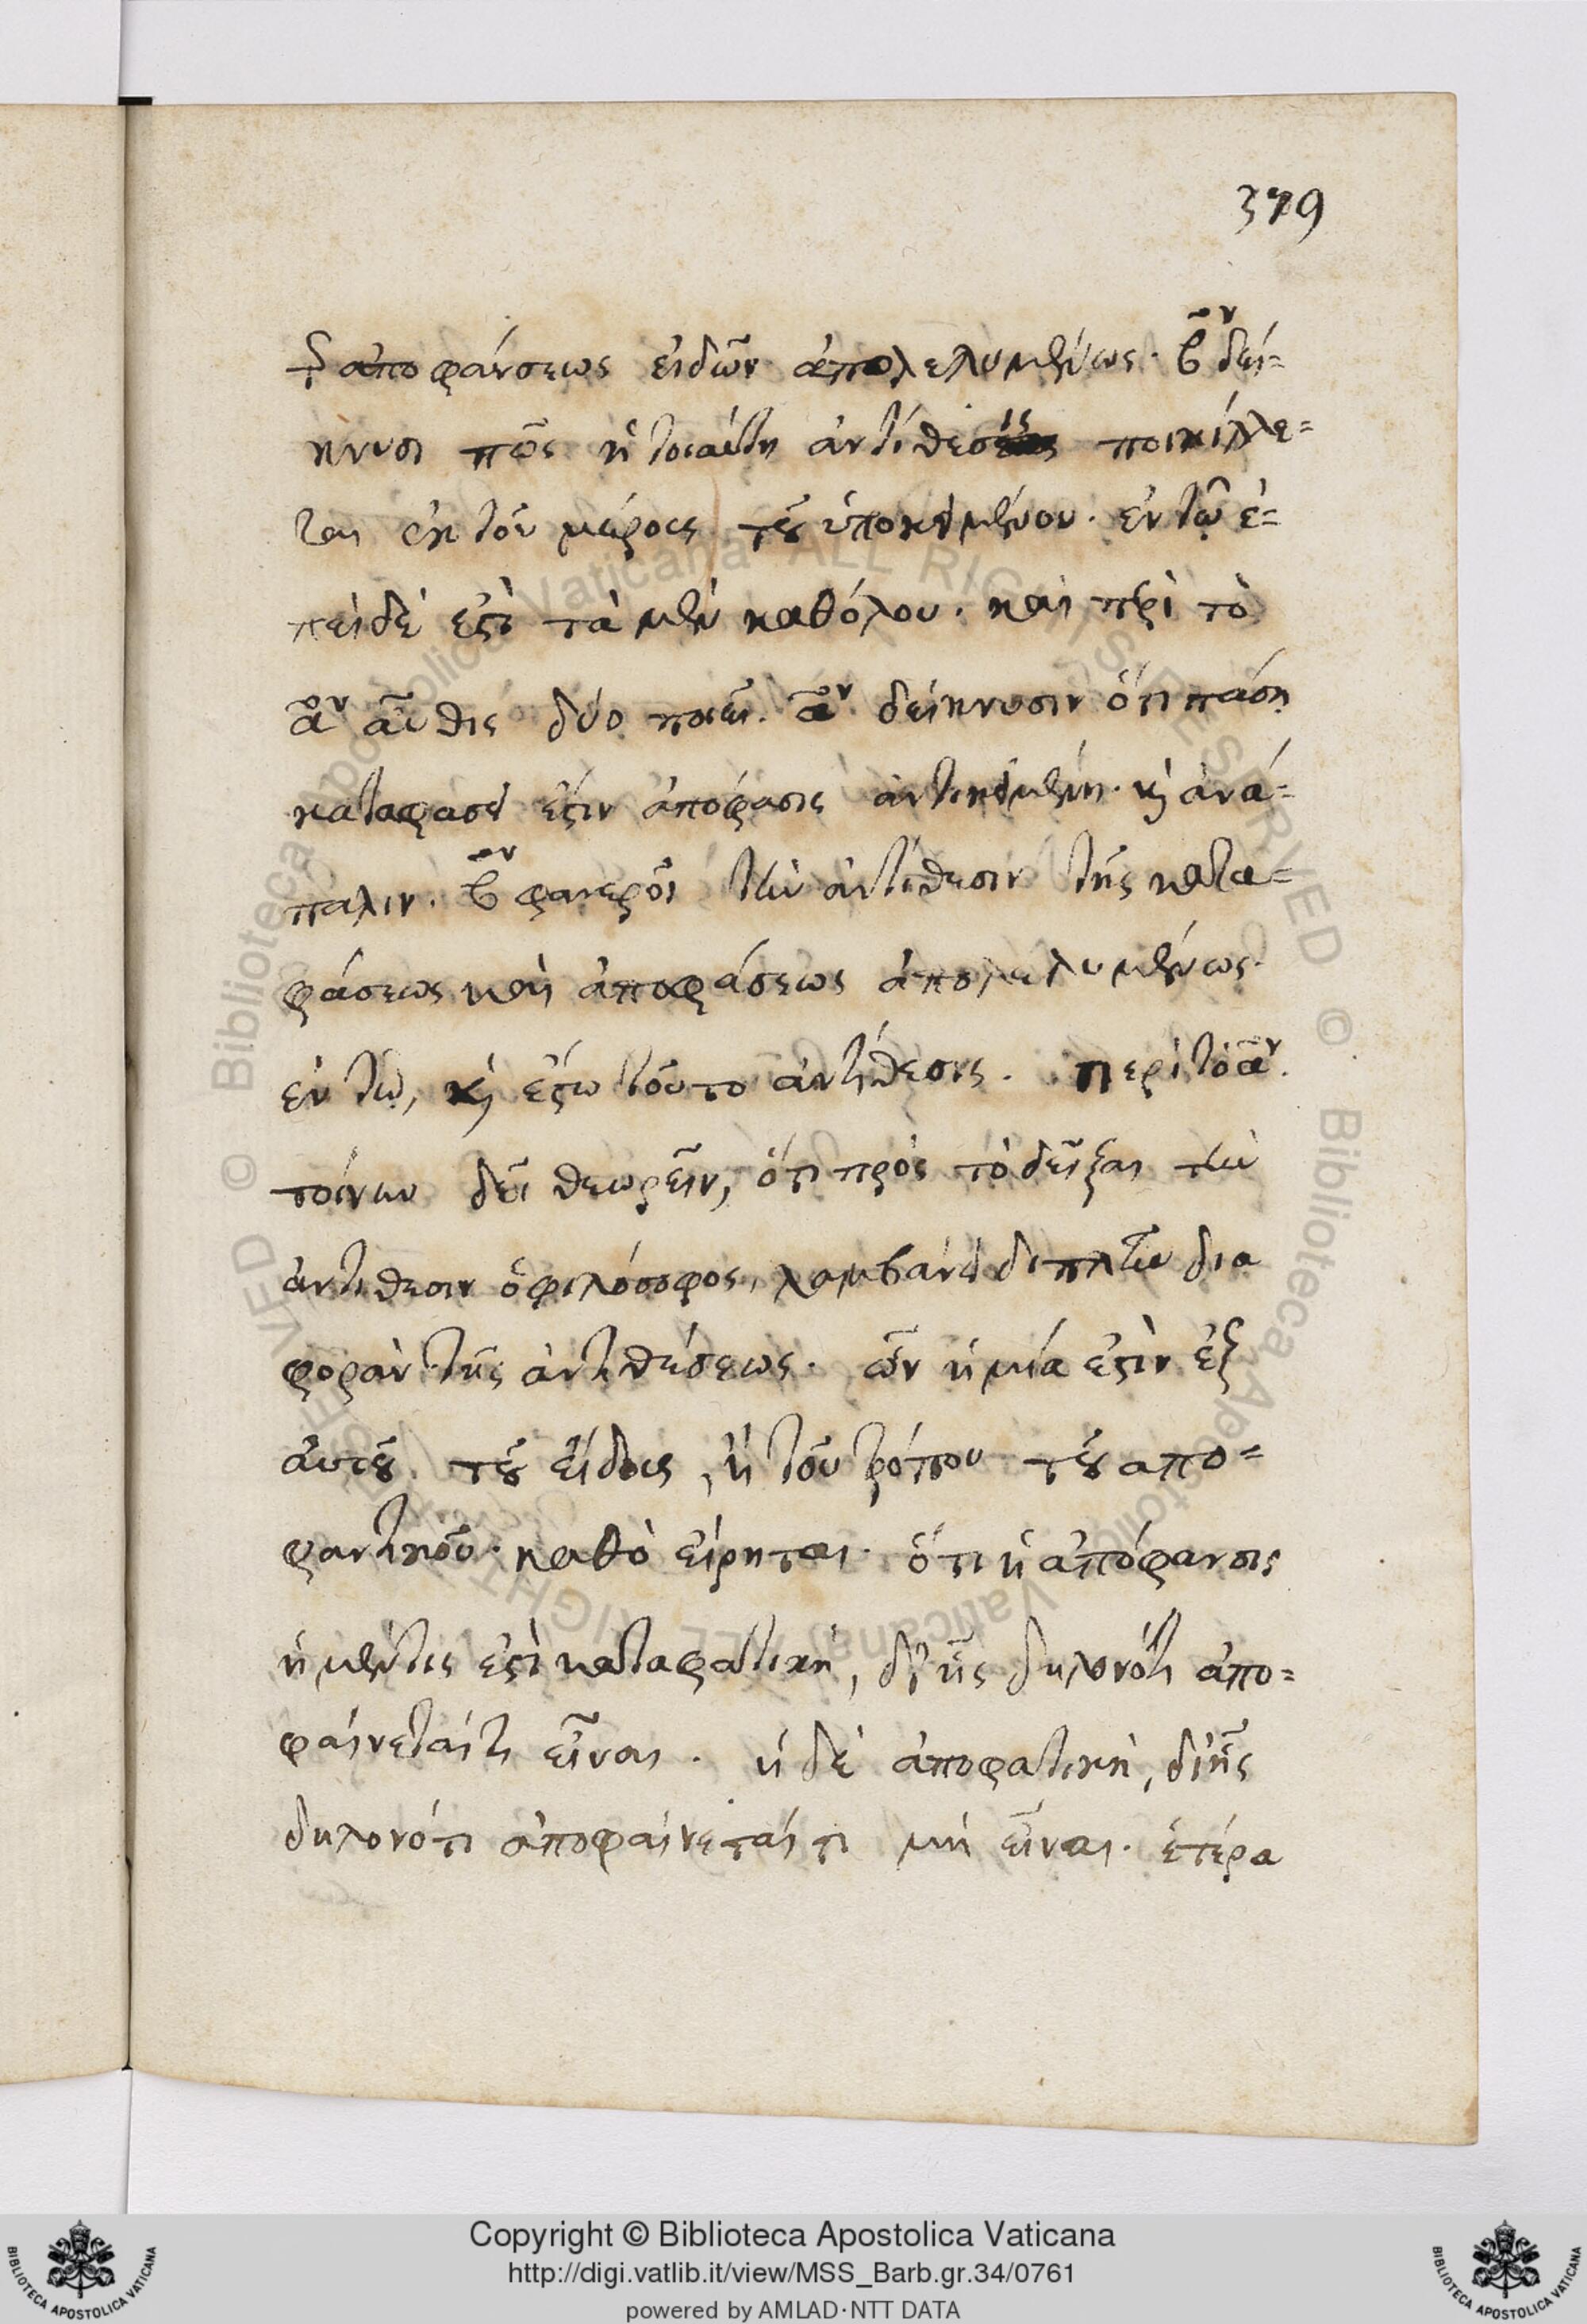 379
τῆς ἀποφάνσεως εἰδῶν ἀπολελυμένως. βον δεί=
κνυσι πῶς ἡ τοιαύτη ἀντίθεσις ποικίλλε=
ται ἐκ τοῦ μέρους τοῦ ὑποκειμένου. ἐν τῷ ἐ=
πεὶ δέ ἐστι τὰ μὲν καθόλου. καὶ περὶ τὸ
αον αὖθις δύο ποιεῖ. αον δείκνυσιν ὅτι πάσῃ
καταφάσει ἐστιν ἀπόφασις ἀντικειμένη. καὶ ἀνά=
παλιν. βον φανεροῖ τὴν ἀντίθεσιν τῆς κατα=
φάσεως καὶ ἀποφάσεως ἀπολελυμένως
ἐν τῷ, καὶ ἔστω τοῦτο ἀντίθεσις. περὶ τὸ αον.
τοίνυν δεῖ θεωρεῖν, ὅτι πρὸς τὸ δεῖξαι τὴν
ἀντίθεσιν ὁ φιλόσοφος, λαμβάνει διπλῆν δια
φορὰν τῆς ἀντιθέσεως. ὧν ἡ μία ἐστὶν ἐξ
αὐτοῦ τοῦ εἴδους, ἢ τοῦ τρόπου τοῦ ἀπο=
φαντικοῦ. καθὸ εἴρηται. ὅτι ἡ ἀπόφανσις
ἡ μέν τις ἐστὶ καταφατικὴ, δι' ἧς δηλονότι ἀπο=
φαίνεταί τι εἶναι. ἡ δὲ ἀποφατικὴ, δι' ἧς
δηλονότι ἀποφαίνεταί τι μὴ εἶναι. ἑτέρα
Copyright © Biblioteca Apostolica Vaticana
http://digi.vatlib.it/view/MSS_Barb.gr.34/0761
powered by AMLAD·NTT DATA
BIBLIOTECA APOSTOLICA VATICANA
BIBLIOTECA APOSTOLICA VATICANA